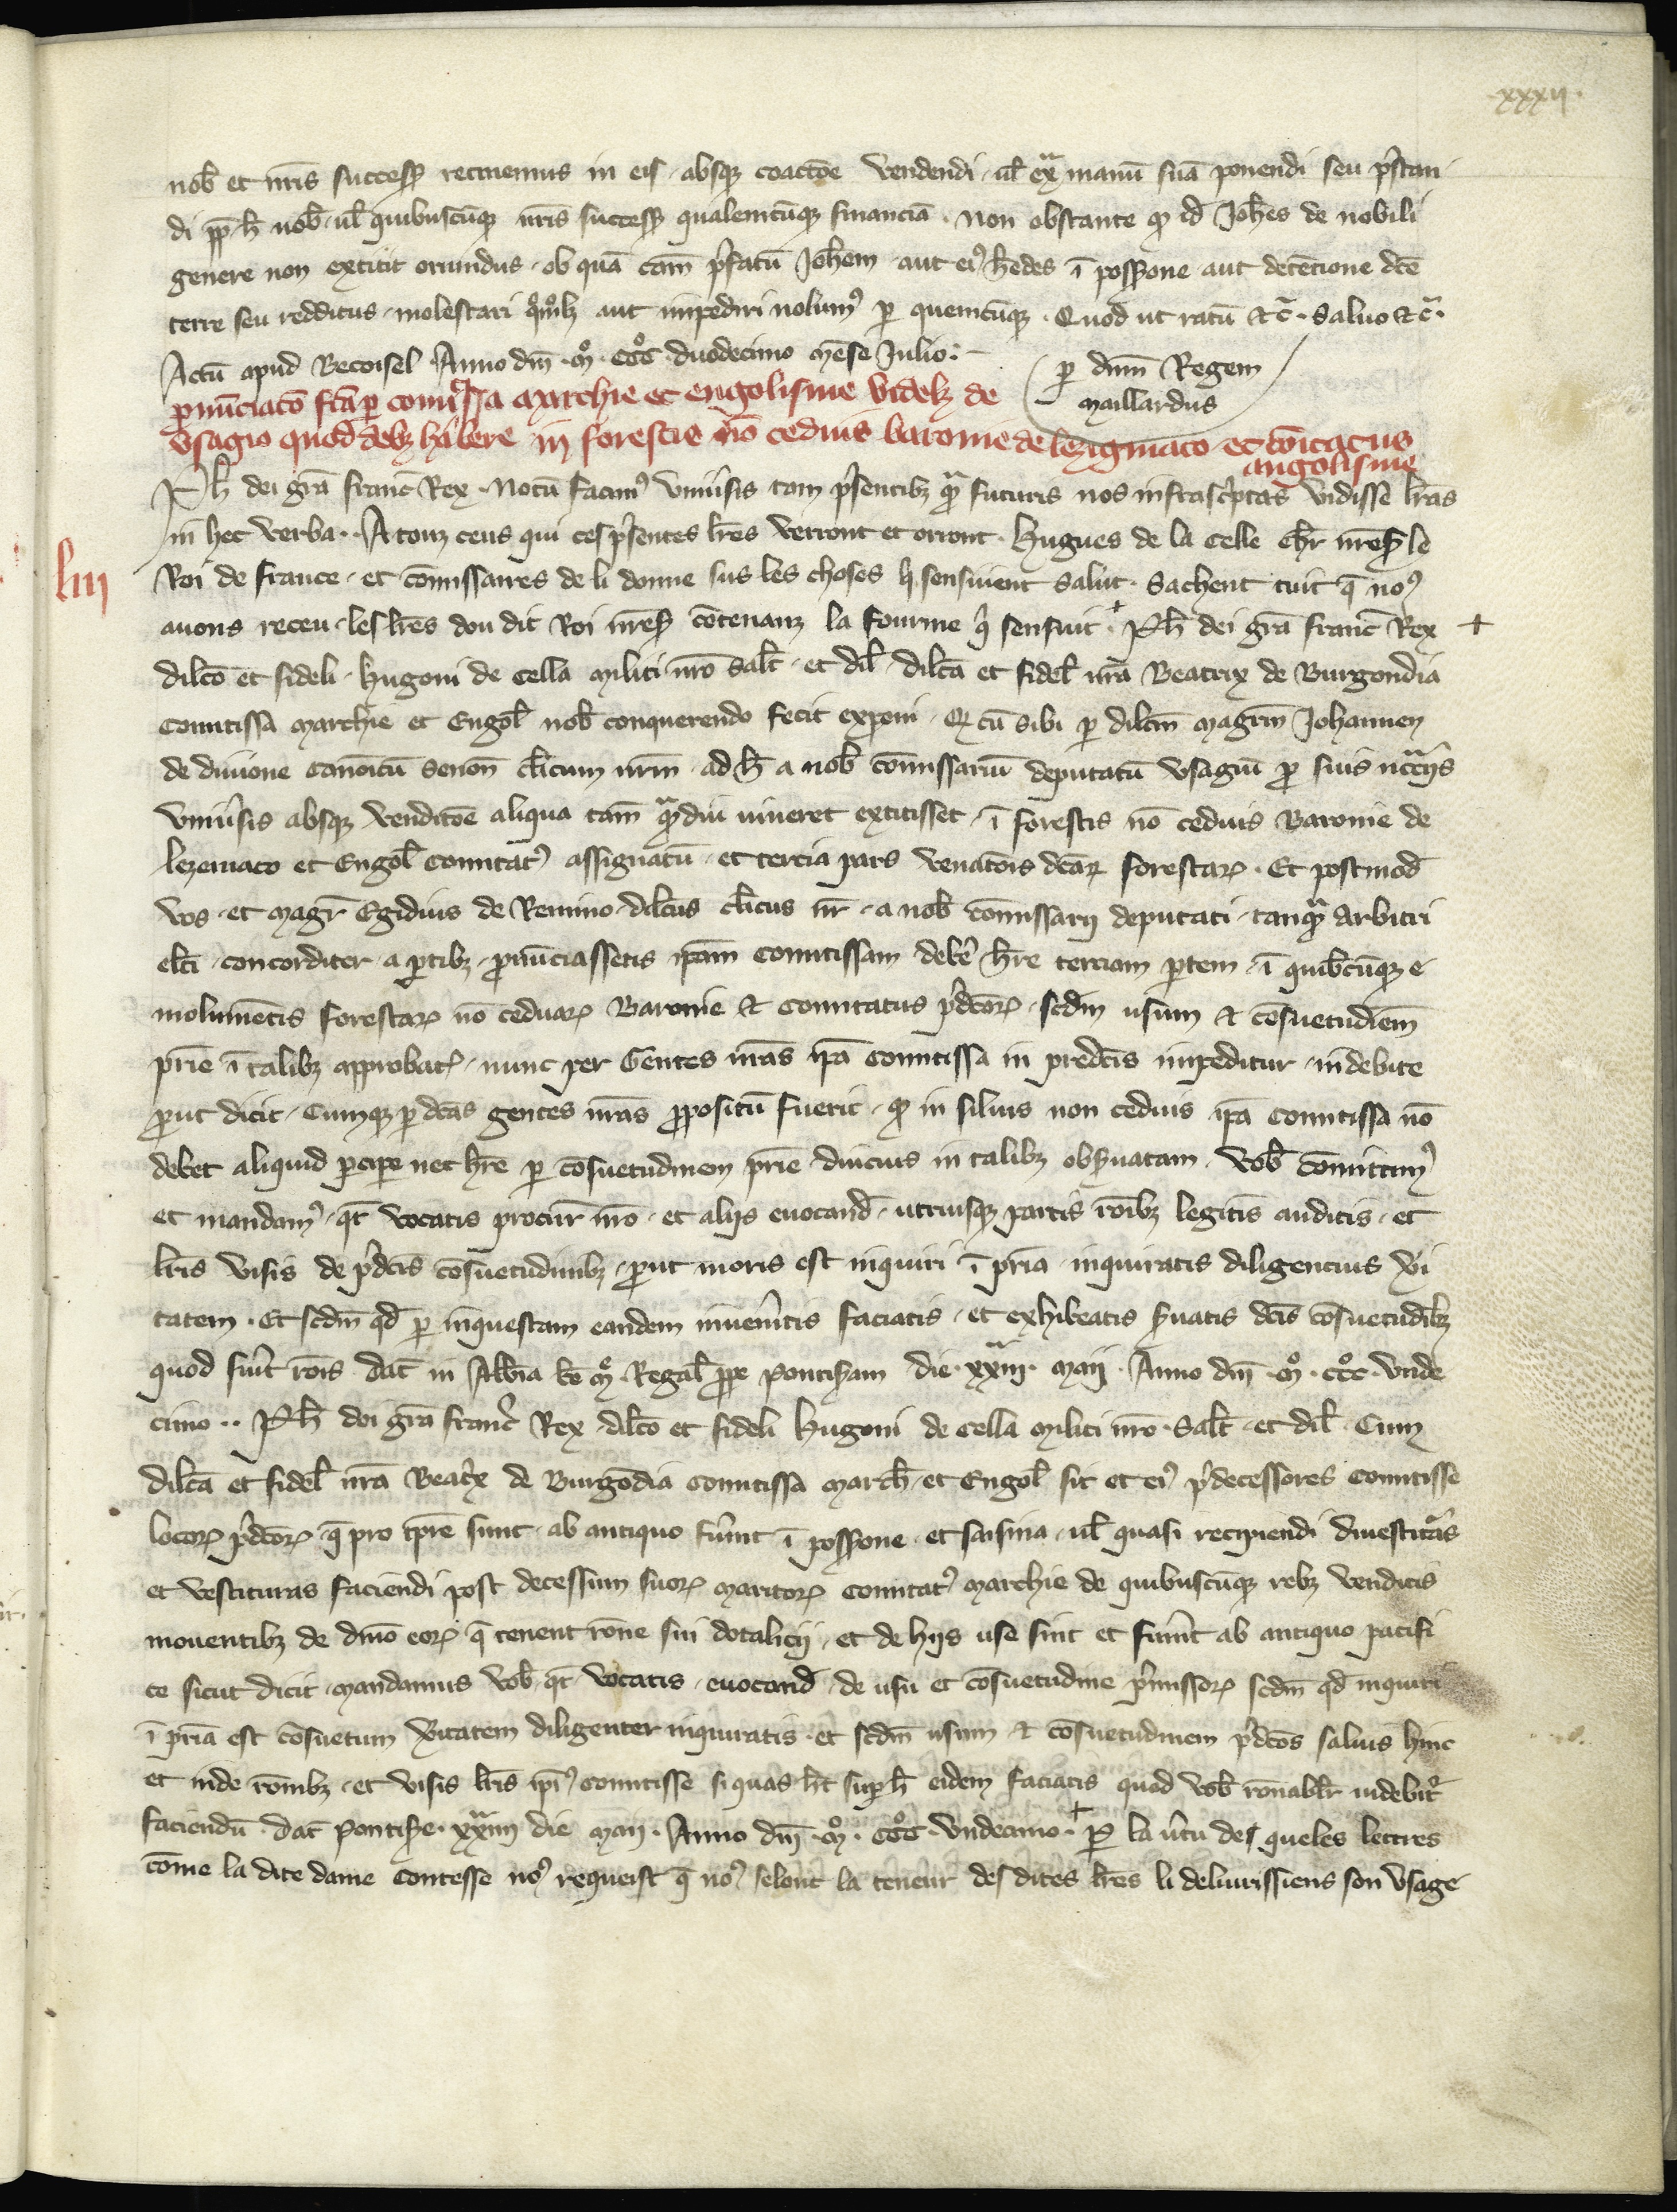 xxxii.
nob̄ et nr̄is succeſſ retinemus in eis absqꝫ coactōe vendendi ul̄ exᵃ manū suā ponendi seu p̄stan
di ꝓp̄ h̄ nob̄ ul̄ quibuscūqꝫ nr̄is succeſſ qualemcūqꝫ financiā. Non obstante qꝫ id̄ Joh̄es de nobili
genere non extitit oriundus, ob quā cām p̄fatū Joh̄em aut eiꝰ h̄edes ī poſſ̄one aut detēcione dc̄e
terre seu redditus, molestari qͦmͦlꝫ aut impediri nolumꝰ ꝑ quemcūqꝫ. Quod ut ratū ⁊c̄. Saluo ⁊c̄.
Actū apud Becoisel Anno dn̄i .mͦ. cccͦ duodecimo mēse Julio.
ꝑ dn̄m Regem
Maillardus
ꝓnūciatō fc̄a ꝑ comitissa Marchie et engolisme videlꝫ de
vsagio quod debꝫ hab̄ere in forestis nō ceduis baronie de lezigniaco et cōitatus
angolisme
liii
Ph̄ dei grā Franc̄ Rex. Notū facimꝰ vniūsis tam p̄sentibꝫ qᵃ̄ futuris nos infrasc̄ptas vidisse lr̄as
in hec verba. A touz ceus qui ces p̄sentes lr̄es verront et orront. Hugues de la Celle chr̄ nr̄eſ le
Roi de France, et cōmissaires de li donne sus les choses q̄ sensiuent salut. Sachent tuit q̄ noꝰ
auons receu les lr̄es dou dit Roi nr̄eſ cōtenanz la fourme q̄ sensuit. + Ph̄ dei grā Franc̄ Rex +
dilc̄o et fideli Hugoni de Cella militi nr̄o salt̄ et dil̄. Dilc̄a et fidel̄ nr̄a Beatrix de Burgondia
Comitissa Marchie et Engol̄ nob̄ conquerendo fecit exponi. Qꝫ cū sibi ꝑ dilc̄m magr̄m Johannem
de diuione canoītū Senon̄ cl̄icum nr̄m ad h̄ a nob̄ cōmissariū deputatū vsagiū ꝓ suis nc̄cᵃ̄iis
vniūsis absqꝫ venditōe aliqua tam qᵃ̄diu uiueret extitisset, ī forestis nō ceduis Baronie de
lezeniaco et Engol̄ Comitatꝰ assignatū et tercia pars venatōis dc̄aꝝ forestaꝝ. Et postmod̄
vos et magr̄ Egidius de Remino dilc̄us cl̄icus nr̄ a nob̄ cōmissarij deputati, tanqᵃ̄ arbitri
elc̄i concorditer a ꝑtibꝫ ꝓnūciassetis ip̄am comitissam debē h̄re terciam ꝑtem ī quibc̄ūqꝫ e
molumētis forestaꝝ nō ceduaꝝ Baronie ⁊ Comitatus p̄dc̄oꝝ sc̄dm usum ⁊ cōsuetudīem
pr̄ie ī talibꝫ approbatꝭ, nunc per Gentes nr̄as ip̄a Comitissa in predc̄is impeditur indebite
ꝓut dicit. Cumqꝫ ꝑ dc̄as gentes nr̄as ꝓpositū fuerit, qꝫ in siluis non ceduis ip̄a Comitissa nō
debet aliquid ꝑcipe nec h̄re ꝑ cōsuetudinem pr̄ie diucius in talibꝫ obs̄uatam. Vob̄ cōmittimꝰ
et mandamꝰ qt̄ vocatis procur̄ nr̄o et alijs euocand̄, utriusqꝫ partis rōibꝫ legitīs auditis et
lr̄is visis de p̄dc̄is cōsuetudinibꝫ, ꝓut moris est inquiri ī pr̄ia inquiratis diligencius v̄i
tatem. Et sc̄dm qd̄ ꝑ inquestam eandem inuenītis faciatis et exhibeatis s̄uatis dc̄is cōsuetudībꝫ
quod fuīt rōis. Dat̄ in Abb̄ia bē mͤ Regal̄ ꝓpe Pontis̄am die xxiiiᵃ. Maij Anno dn̄i .mͦ. cccͦ. vnde
cimo.. Ph̄ dei grā Franc̄ Rex dilc̄o et fideli Hugoni de Cella militi nr̄o. Salt̄ et dil̄. Cum
dilc̄a et fidel̄ nr̄a Beat̄x de Burgōdia Comitissa March̄ et Engol̄ sit et eiꝰ p̄decessores comitisse
locoꝝ p̄dc̄oꝝ q̄ pro tp̄re sunt, ab antiquo fūint ī poſſ̄one et saisina ul̄ quasi recipiendi diuestitᵃ̄s
et vestituras faciendi post decessum suoꝝ maritoꝝ comitatꝰ Marchie de quibuscūqꝫ rebꝫ venditis
mouentibꝫ de dn̄io eoꝝ q̄ tenent rōne sui dotalicij, et de hijs use sint et fuīnt ab antiquo pacifi
ce sicut dicit. Mandamus vob̄ qt̄ vocatis euocand̄ de usu et cōsuetudine p̄missoꝝ sc̄dm qd̄ inquiri
ī pr̄ia est cōsuetum v̄itatem diligenter inquiratis et sc̄dm usum ⁊ cōsuetudinem p̄dc̄os saluis hinc
et inde rōnibꝫ et visis lr̄is ip̄iꝰ comitisse si quas h̄t suꝑ h̄ eidem faciatis quod vob̄ rōnabl̄r uidebit̄
faciendū. Dat̄ Pontis̄e xxiiiiᵃ die Maij. Anno dn̄i .mͦ. cccͦ. vndecimo. + Par la ūtu des queles lettres
cōme la dite dame contesse noꝰ requeist q̄ noꝰ selont la teneur des dites lr̄es li deliurissiens son vsage